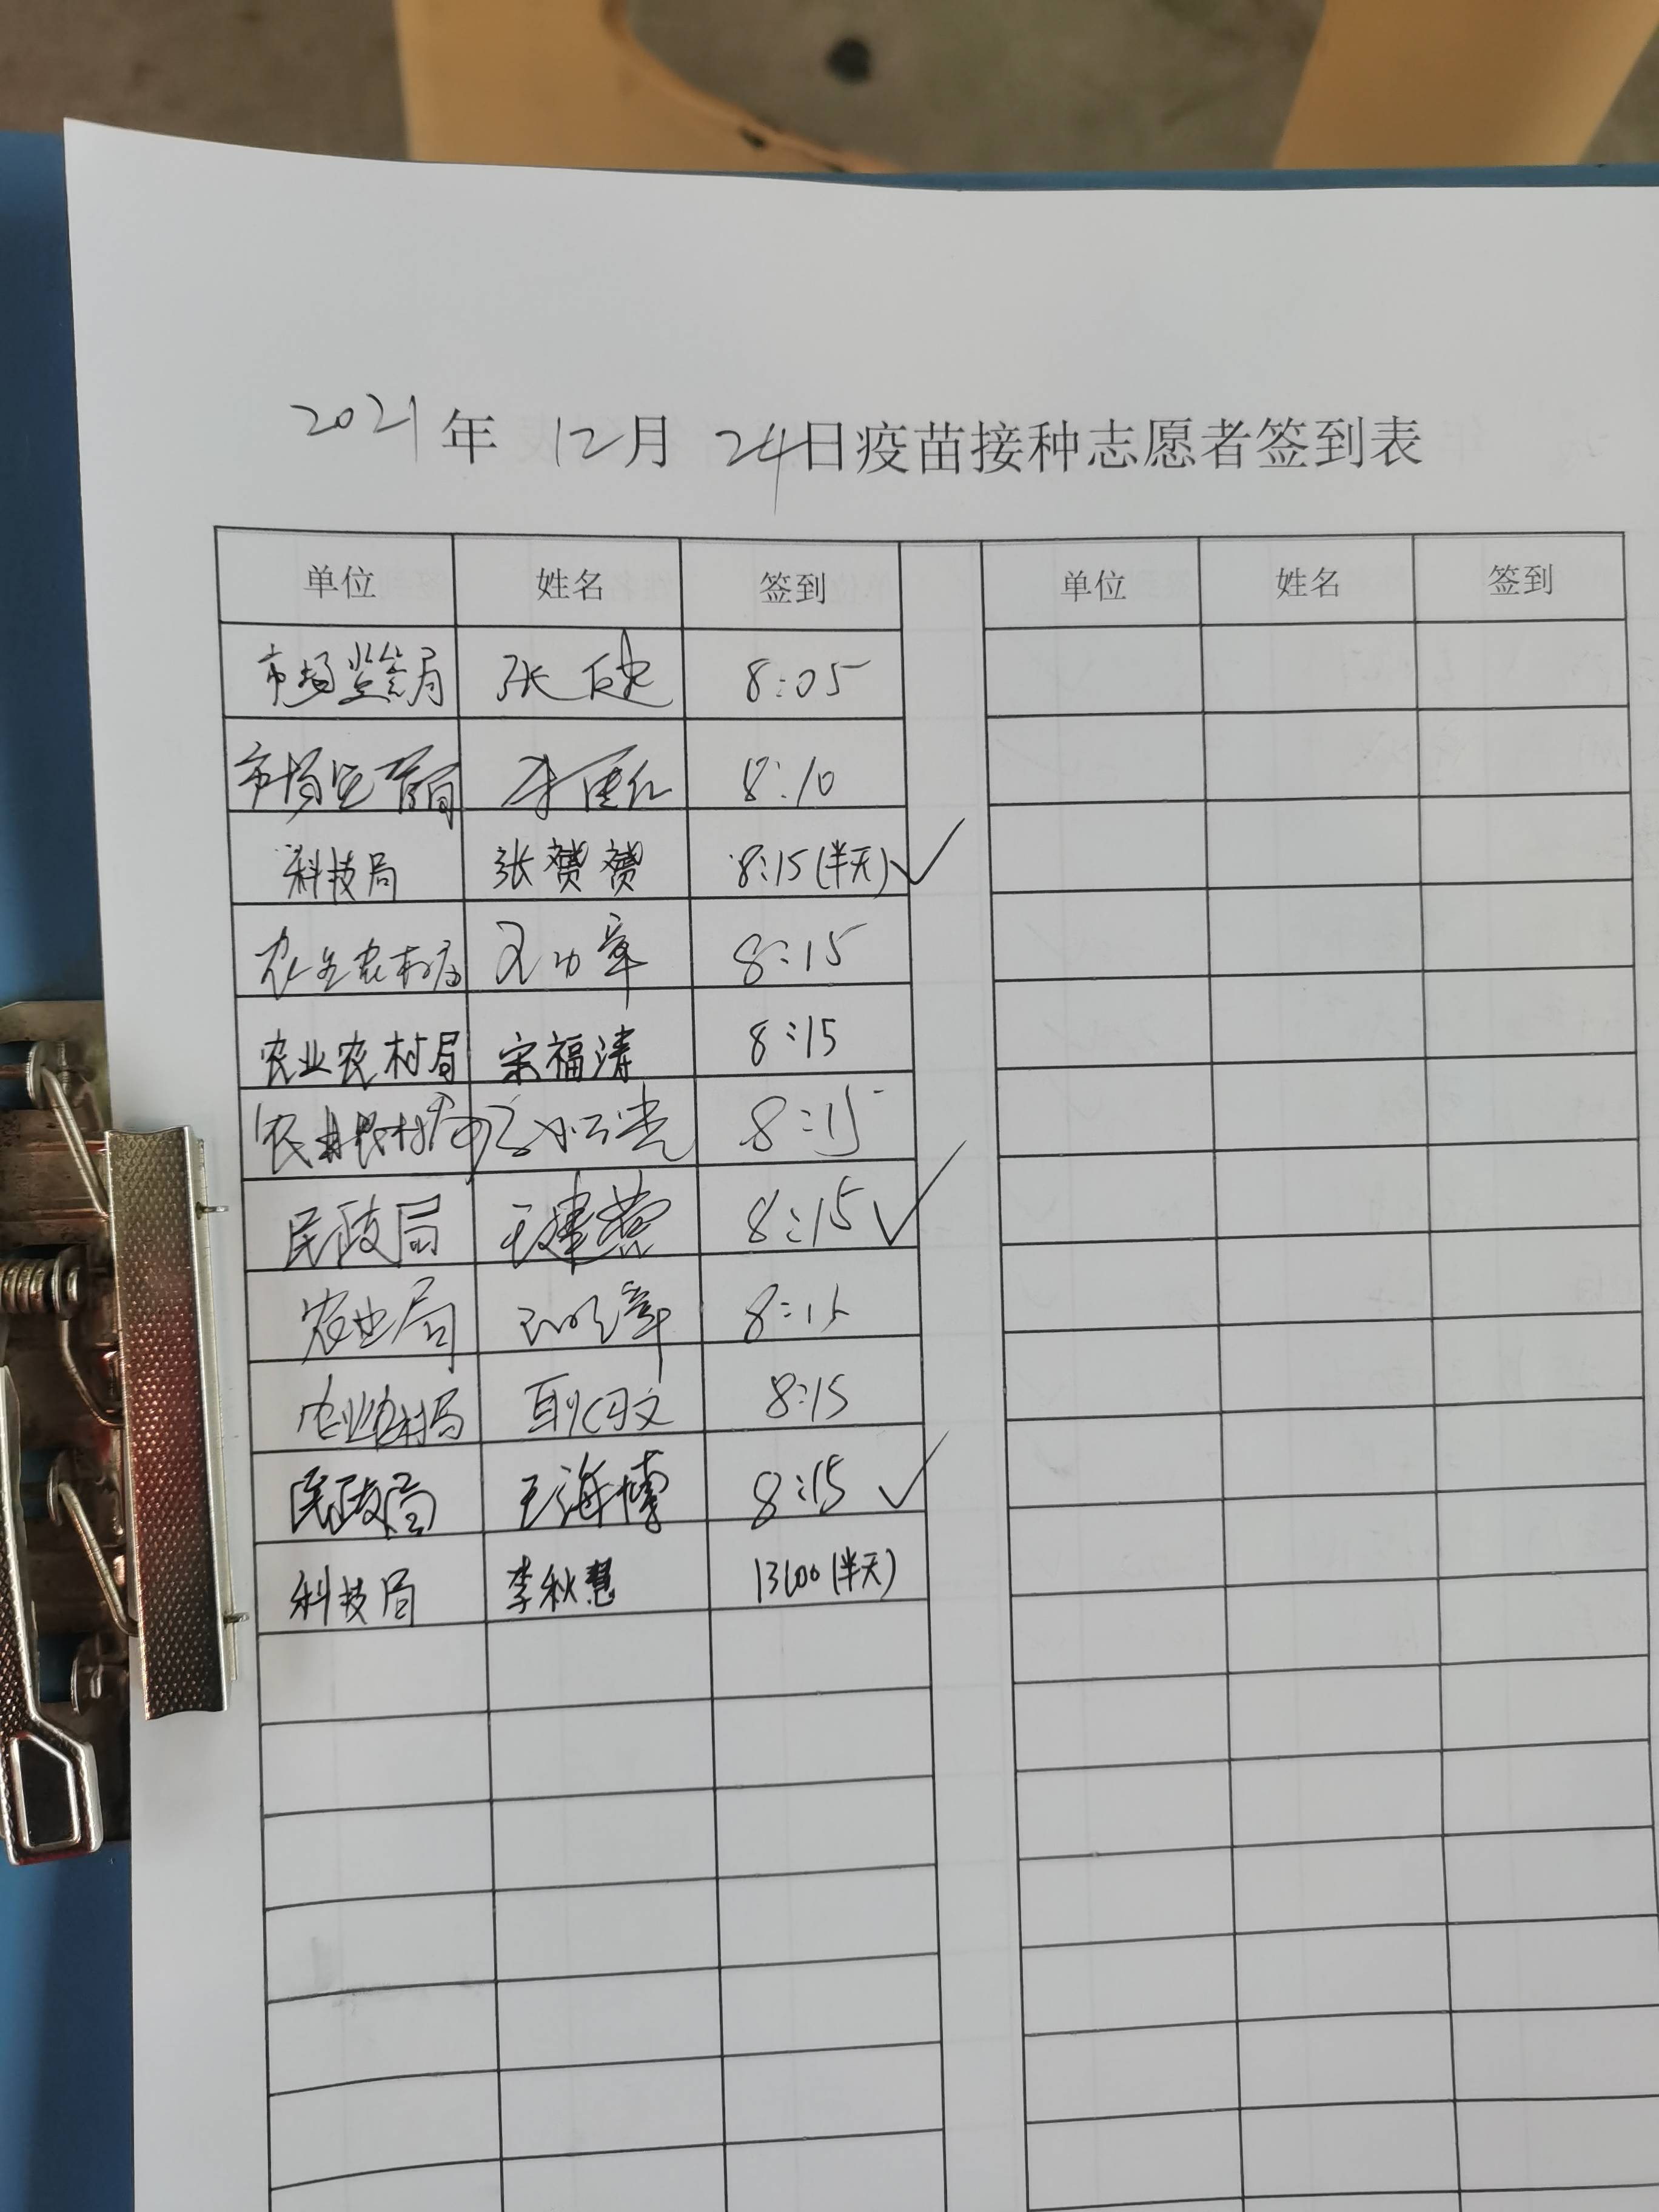 2021年 12月 24日疫苗接种志愿者签到表
单位 姓名 签到 单位 姓名 签到
市场监管局 张健 8:05
市场监管局 8:10
科技局 张赟赟 8:15(半天)✓
农业农村局 王功章 8:15
农业农村局 宋福涛 8:15
农业农村局 8:15
民政局 王建营 8:15 ✓
农业局 8:15
农业农村局 耿习文 8:15
民政局 王海博 8:15 ✓
科技局 李秋慧 13:00(半天)